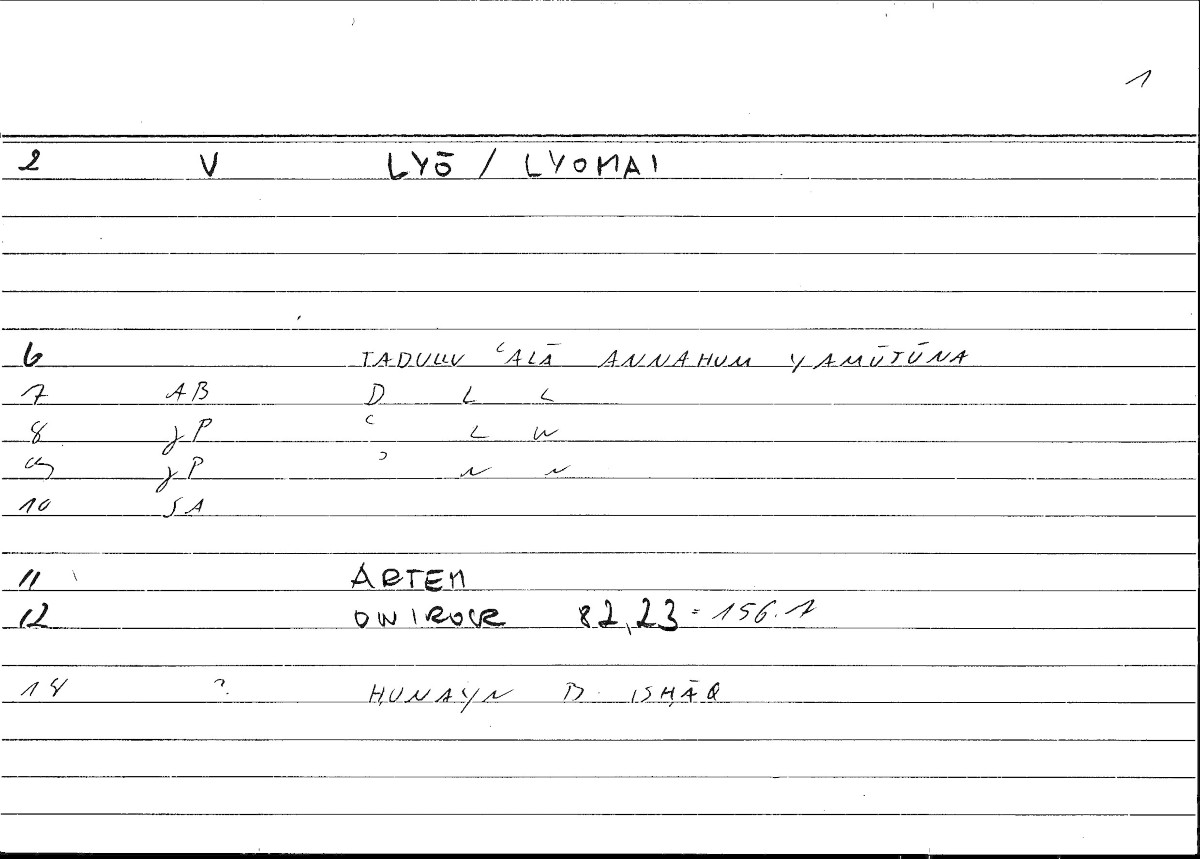 1
2 V LYŌ / LYOMAI
6 TADULLU ʿALĀ ANNAHUM YAMŪTŪNA
7 AB D L L
8 JP ʿ L W
9 JP ʾ N N
10 SA
11 ARTEM
12 ONIROCR 82,23 = 156.7
18 ? ḤUNAYN B. ISḤĀQ